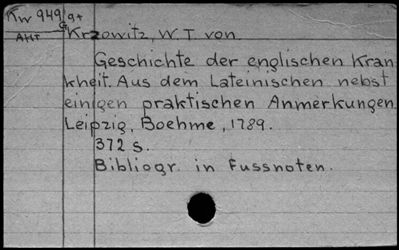 Kw 949 gt
AHT
G
Krzowitz, W.T von
Geschichte der englischen Kran
kheit. Aus dem Lateinischen nebst
einigen praktischen Anmerkungen
Leipzig, Boehme, 1789.
372 s.
Bibliogr. in Fussnoten.